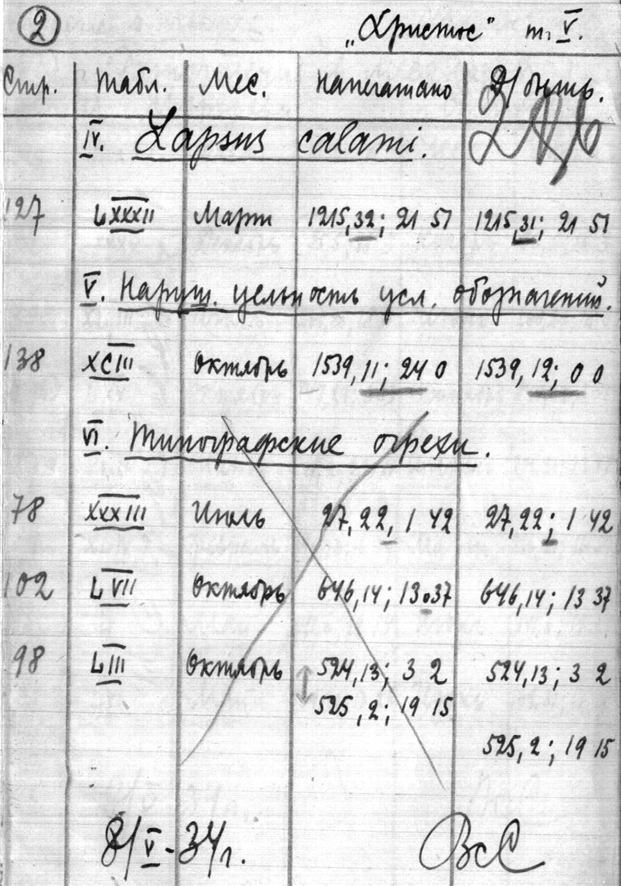 2 „Христос" т. V.
Стр. табл. Мес. напечатано д/быть.
IV. Lapsus calami.
127 LXXXII Март 1215,32; 21 51 1215,31; 21 51
V. Наруш. цельность усл. обозначений.
138 XCIII октябрь 1539,11; 24 0 1539,12; 0 0
VI. Типографские огрехи.
78 XXXIII Июль 27,22, 1 42 27,22; 1 42
102 LVII Октябрь 646,14; 13.37 646,14; 13 37
98 LIII октябрь 524,13; 3 2 524,13; 3 2
525,2; 19 15
525,2; 19 15
8/V-34г. ВсС